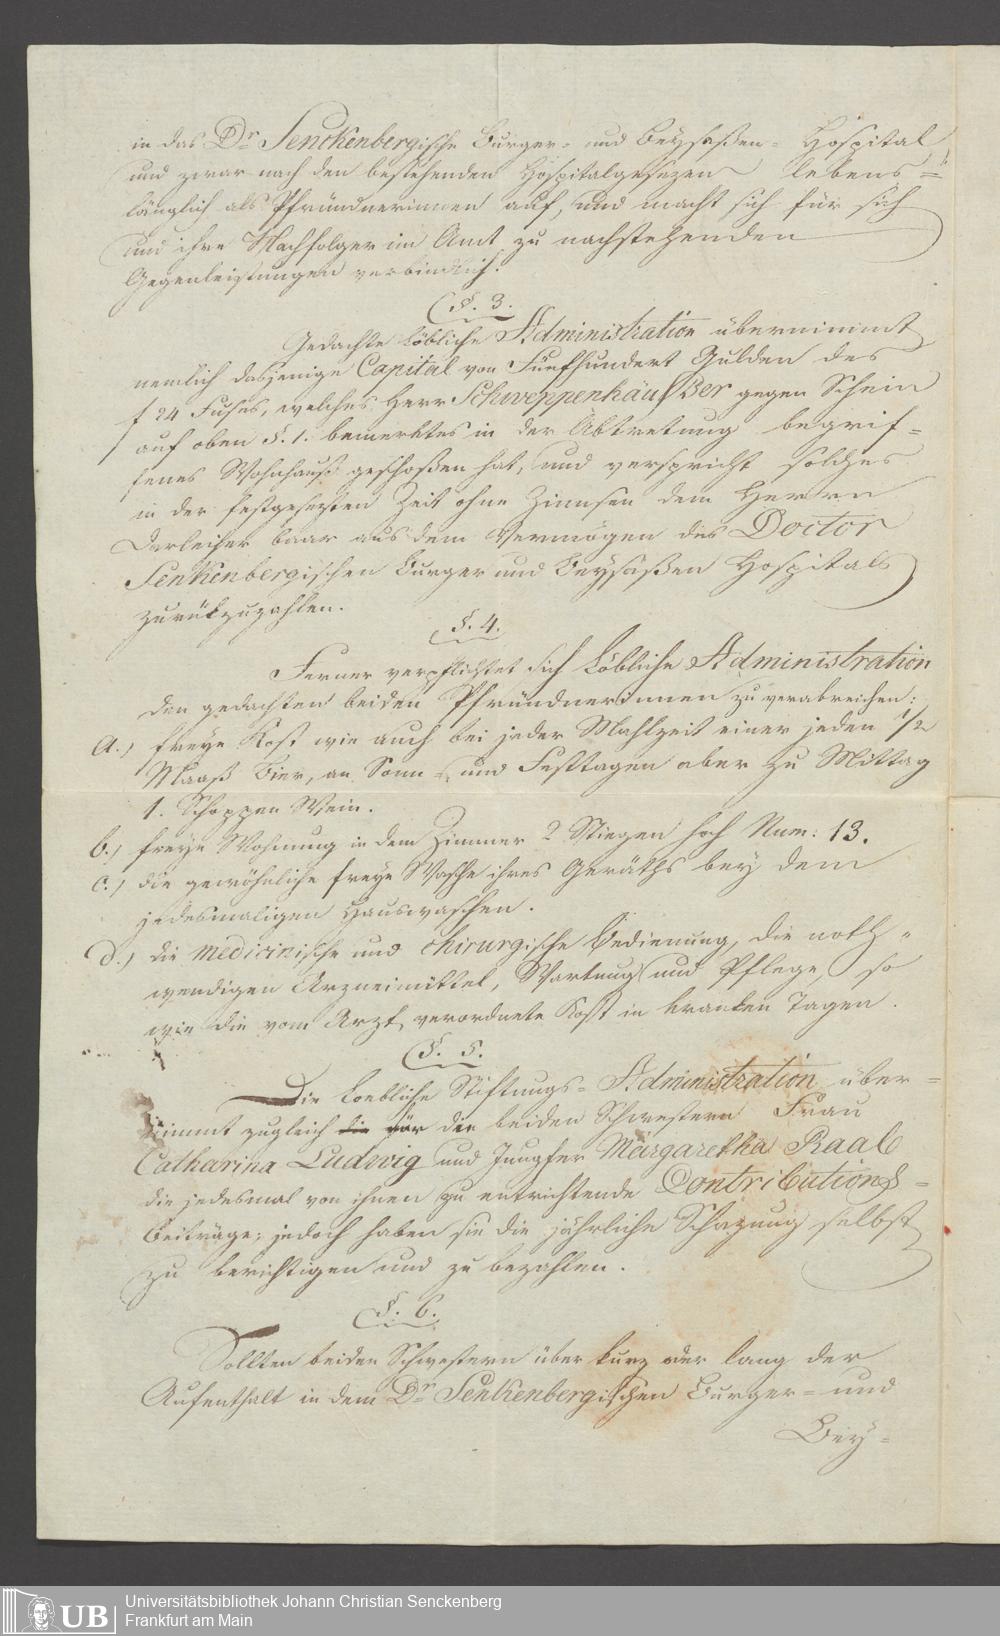 in das Dr. Senckenbergische Bürger- und Beysaßen- Hospital
und zwar nach den bestehenden Hospitalgesezen lebens-
länglich als Pfründnerinnen auf, und macht sich für sich
und ihre Nachfolger im Amt zu nachstehenden
Gegenleistungen verbindlich.
§. 3.
Gedachte Löbliche Administration übernimmt
nemlich dasjenige Capital von Fünfhundert Gulden des
f 24 Fußes, welches Herr Schweppenhäußer gegen Schein
auf oben §. 1. bemerktes in der Abtretung begrif-
fenes Wohnhauß geschoßen hat, und verspricht solches
in der festgesezten Zeit ohne Zinnsen dem Herrn
Darleiher baar aus dem Vermögen des Doctor
Senkenbergischen Burger und Beysaßen Hospitals
zurükzuzahlen.
§. 4.
Ferner verpflichtet sich Löbliche Administration
den gedachten beiden Pfründnerinnen zu verabreichen:
a.) freye Kost wie auch bei jeder Mahlzeit einer jeden 1/2
Maaß Bier, an Sonn- und Festtagen aber zu Mittag
1. Schoppen Wein.
b.) freye Wohnung in dem Zimmer 2 Stiegen hoch Num: 13.
c.) die gewöhnliche freye Wasche ihres Geräths bey dem
jedesmaligen Hauswaschen.
d.) die medicinische und chirurgische Bedienung, die noth-
wendigen Arzneimittel, Wartung und Pflege, so
wie die vom Arzt verordnete Kost in kranken Tagen.
§. 5.
Die Loebliche Stiftungs- Administration über-
nimmt zugleich die für die beiden Schwestern Frau
Catharina Ludwig und Jungfer Margaretha Raab
die jedesmal von ihnen zu entrichtende Contributions-
Beiträge; jedoch haben sie die jährliche Schazung selbst
zu berichtigen und zu bezahlen.
§. 6.
Sollten beiden Schwestern über kurz oder lang der
Aufenthalt in dem Dr. Senkenbergischen Burger- und
Bey-
UB
Universitätsbibliothek Johann Christian Senckenberg
Frankfurt am Main